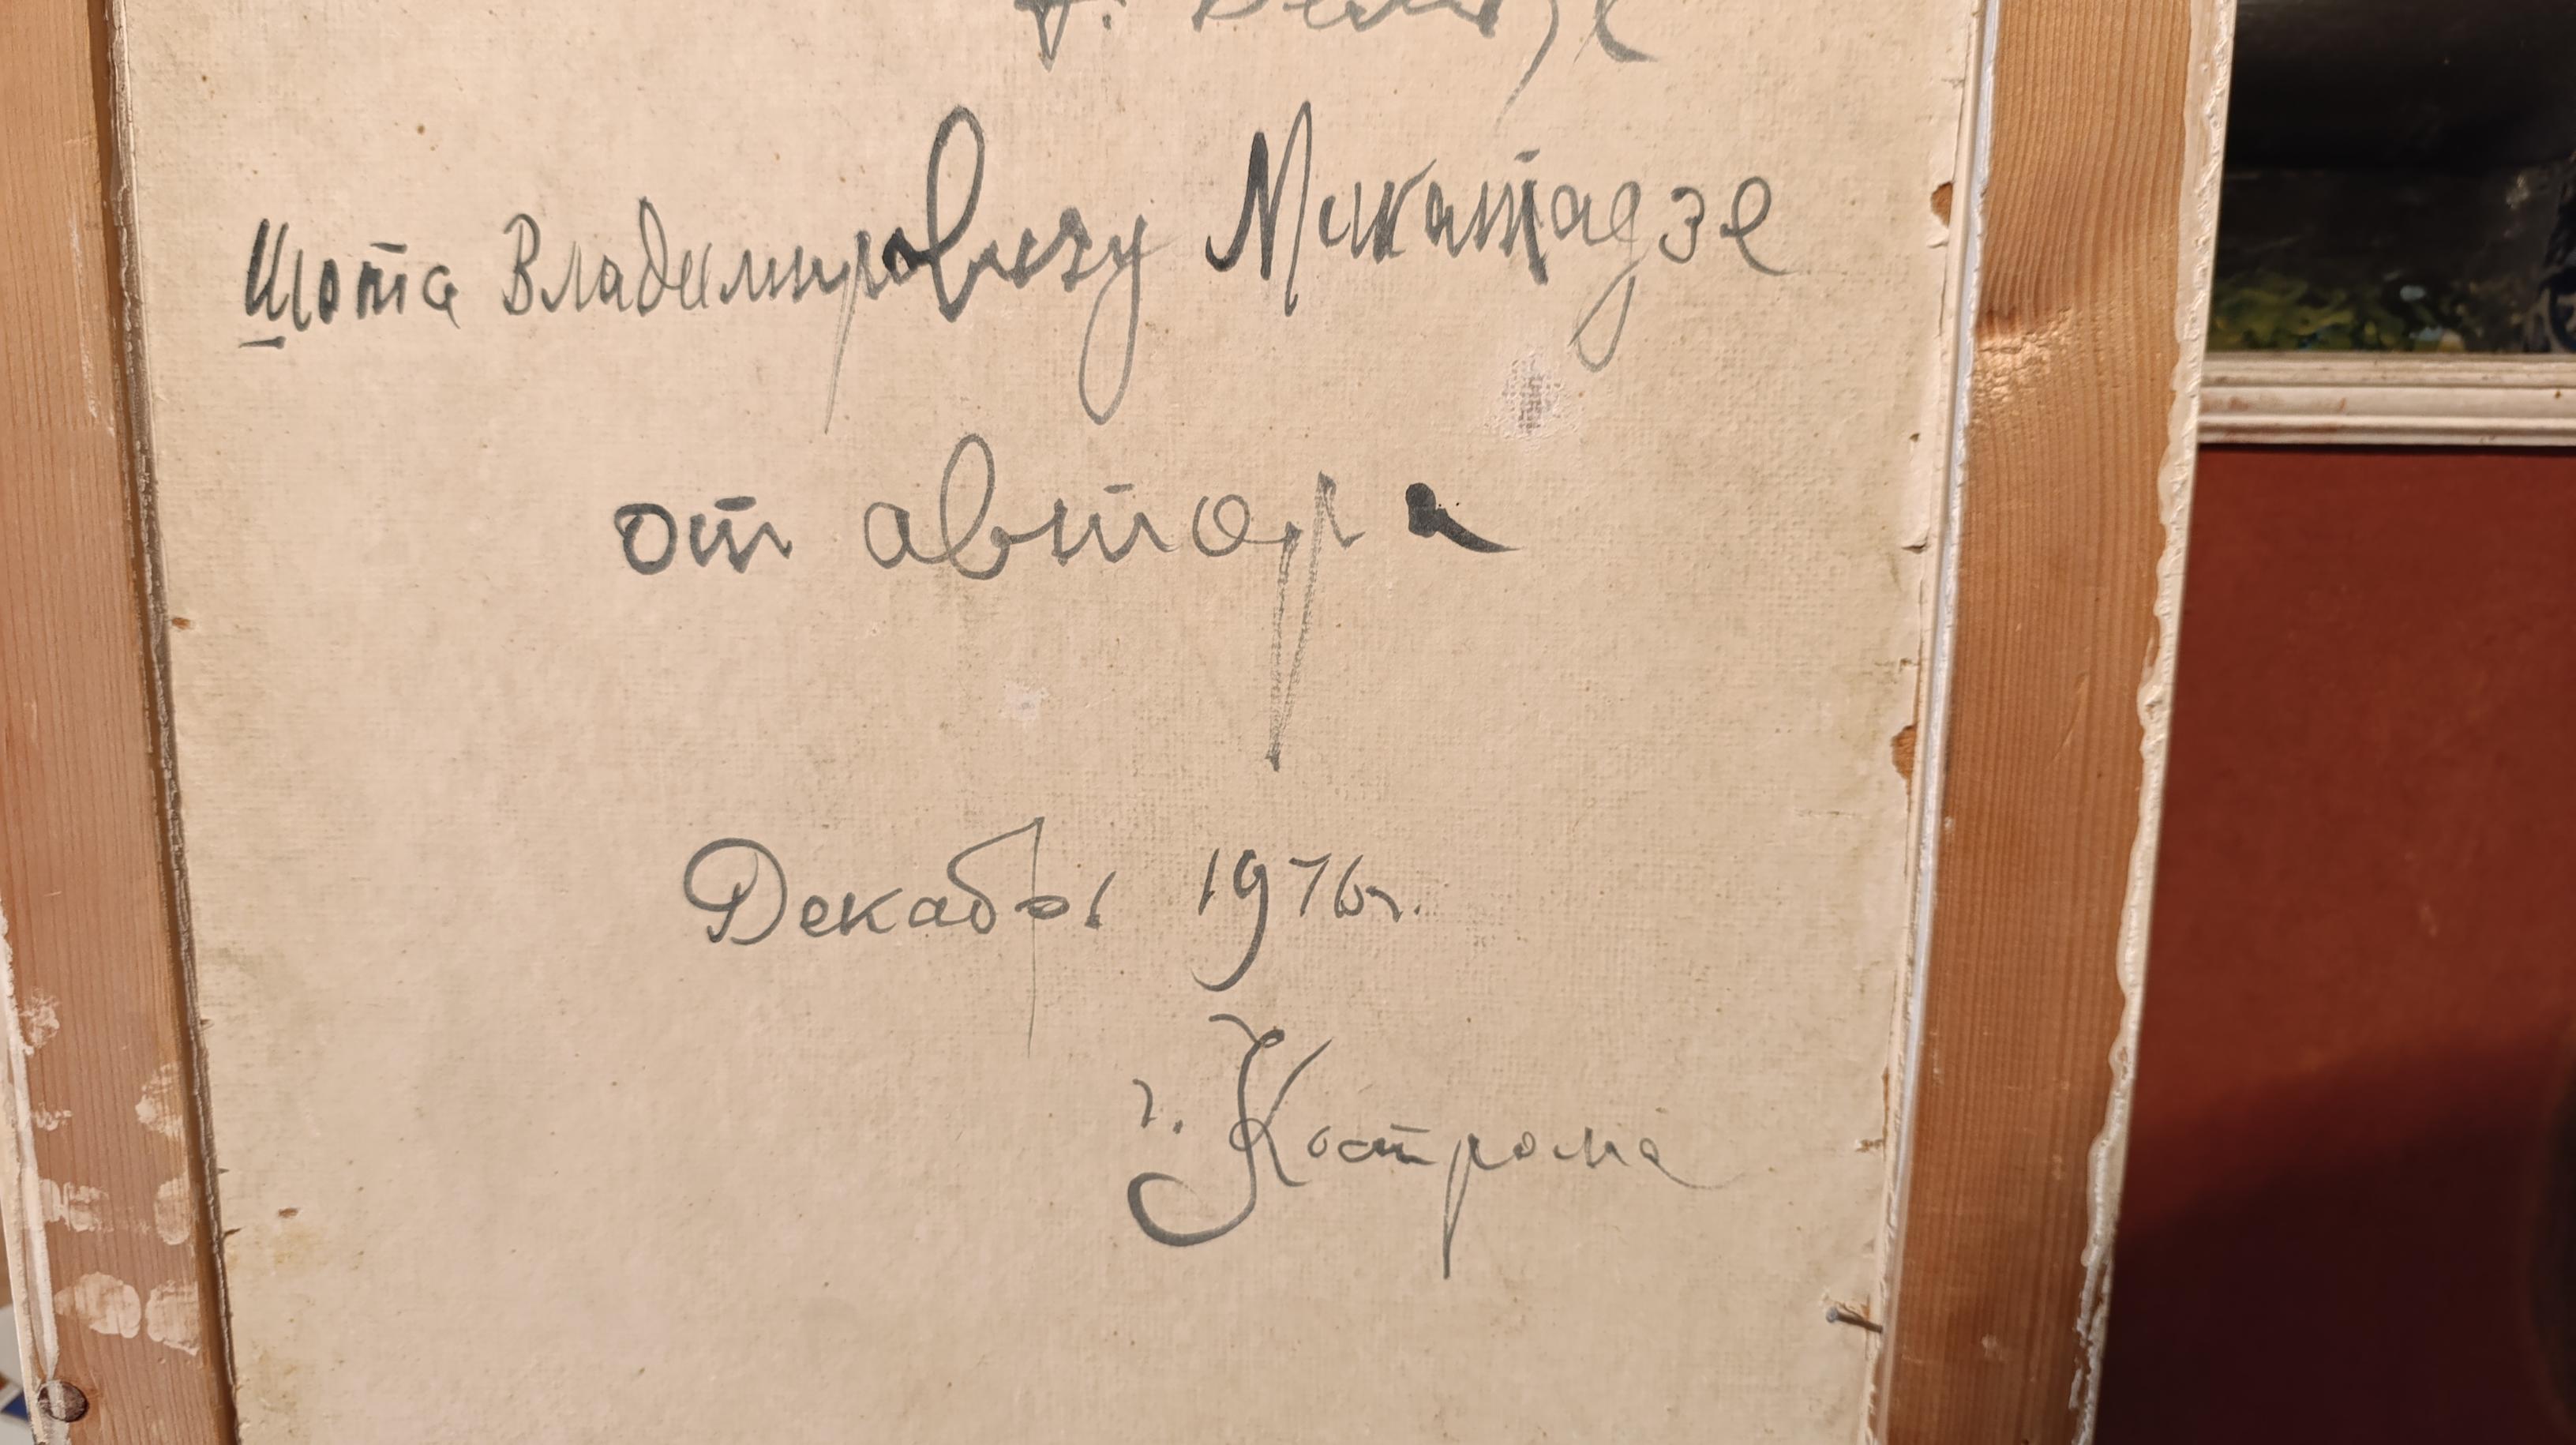 Шота Владимировичу Микатадзе
от автора
Декабрь 1976г.
г. Кострома